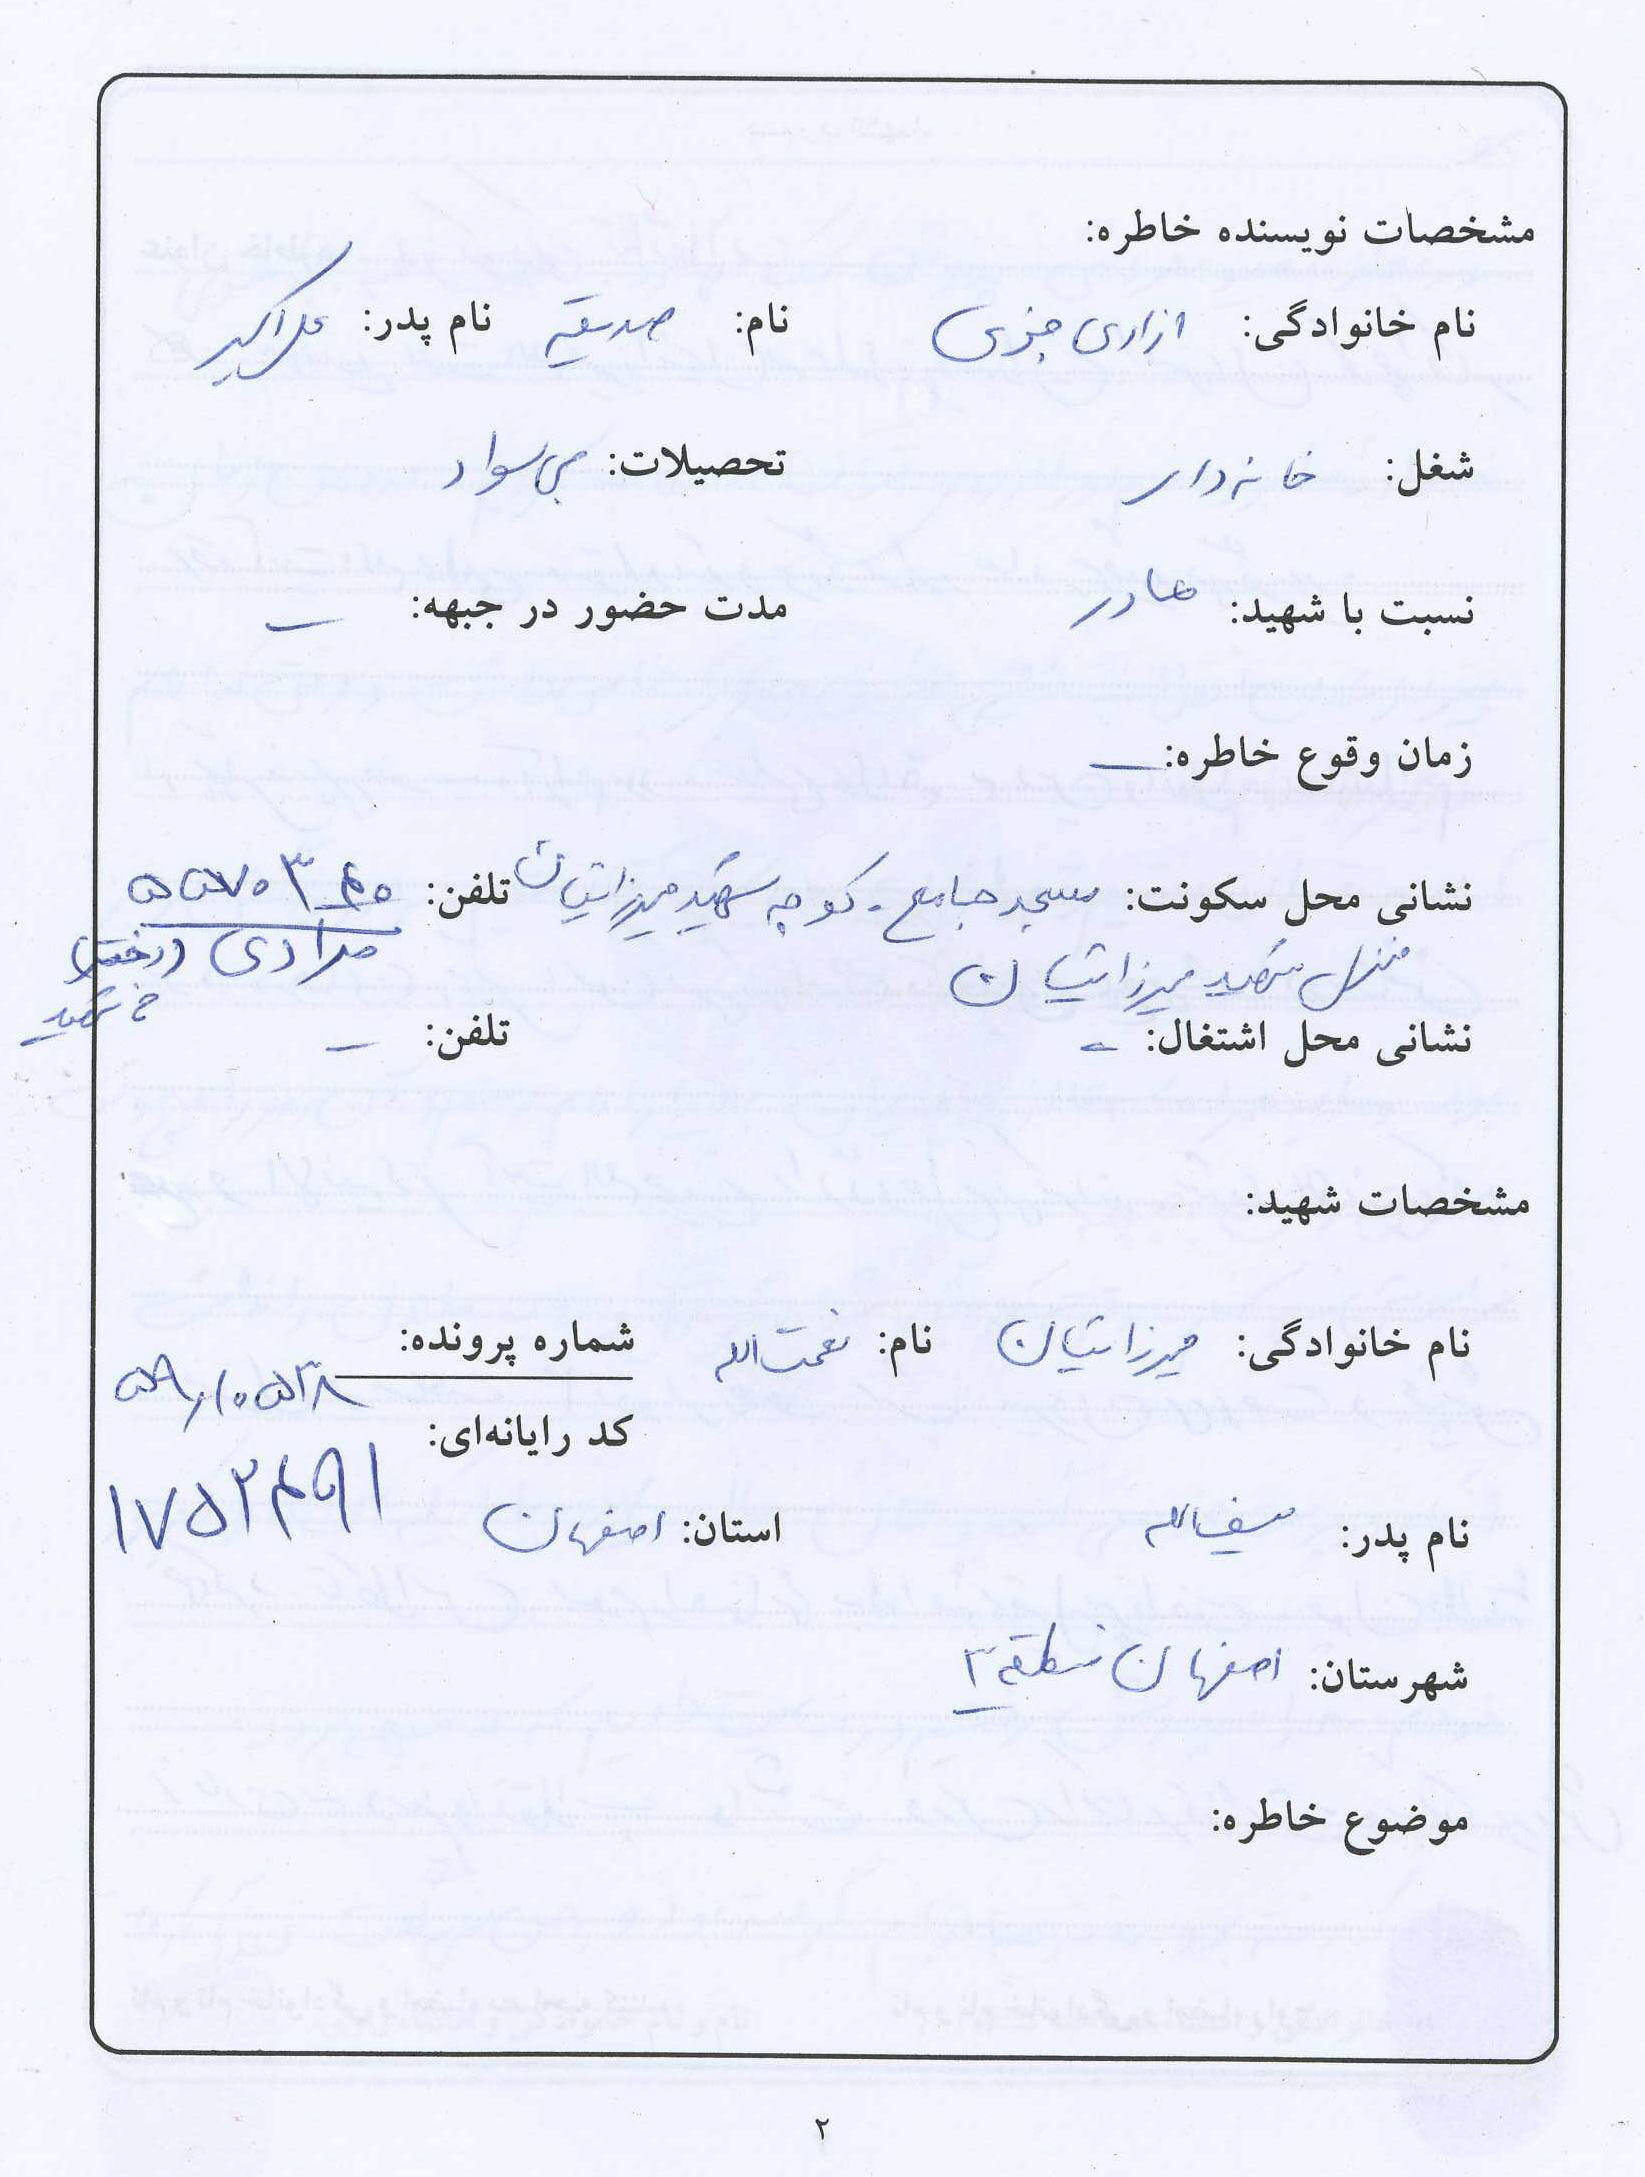 مشخصات نویسنده خاطره:
نام خانوادگی: ازادی جزی نام: صدیقه نام پدر: علی اکبر
شغل: خانه دار تحصیلات: بی سواد
نسبت با شهید: مادر مدت حضور در جبهه: -
زمان وقوع خاطره: -
نشانی محل سکونت: مسجد جامع - کوچه شهید میرزائیان تلفن: ۵۵۷۰۳۴۰
منزل شهید میرزائیان مرادی (دختر
شهید
نشانی محل اشتغال: - تلفن: -
مشخصات شهید:
نام خانوادگی: میرزائیان نام: نعمت الله شماره پرونده:
کد رایانه‌ای:
۱۷۵۲۴۹۱
نام پدر: سیف الله استان: اصفهان
شهرستان: اصفهان منطقه ۳
موضوع خاطره:
۲